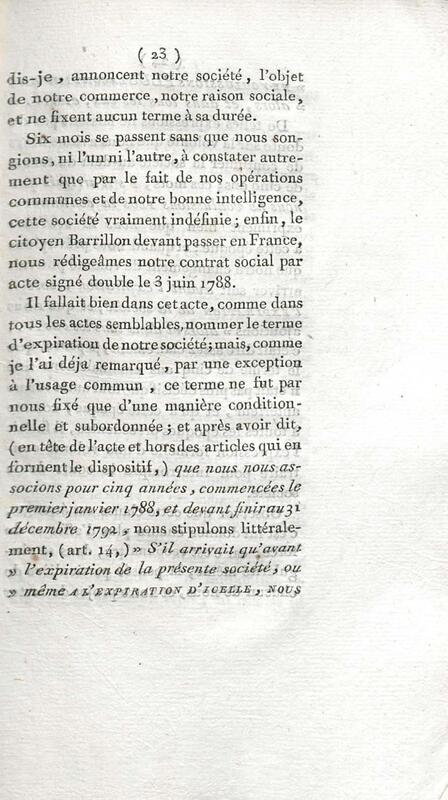 ( 23 )
dis-je, annoncent notre société, l'objet
de notre commerce, notre raison sociale,
et ne fixent aucun terme à sa durée.
Six mois se passent sans que nous son-
gions, ni l'un ni l'autre, à constater autre-
ment que par le fait de nos opérations
communes et de notre bonne intelligence,
cette société vraiment indéfinie; enfin, le
citoyen Barrillon devant passer en France,
nous rédigeâmes notre contrat social par
acte signé double le 3 juin 1788.
Il fallait bien dans cet acte, comme dans
tous les actes semblables, nommer le terme
d'expiration de notre société; mais, comme
je l'ai déja remarqué, par une exception
à l'usage commun, ce terme ne fut par
nous fixé que d'une manière condition-
nelle et subordonnée; et après avoir dit,
(en tête de l'acte et hors des articles qui en
forment le dispositif,) que nous nous as-
socions pour cinq années, commencées le
premier janvier 1788, et devant finir au 31
décembre 1792, nous stipulons littérale-
ment, (art. 14,) » S'il arrivait qu'avant
» l'expiration de la présente société, ou
» même A L'EXPIRATION D'ICELLE, NOUS